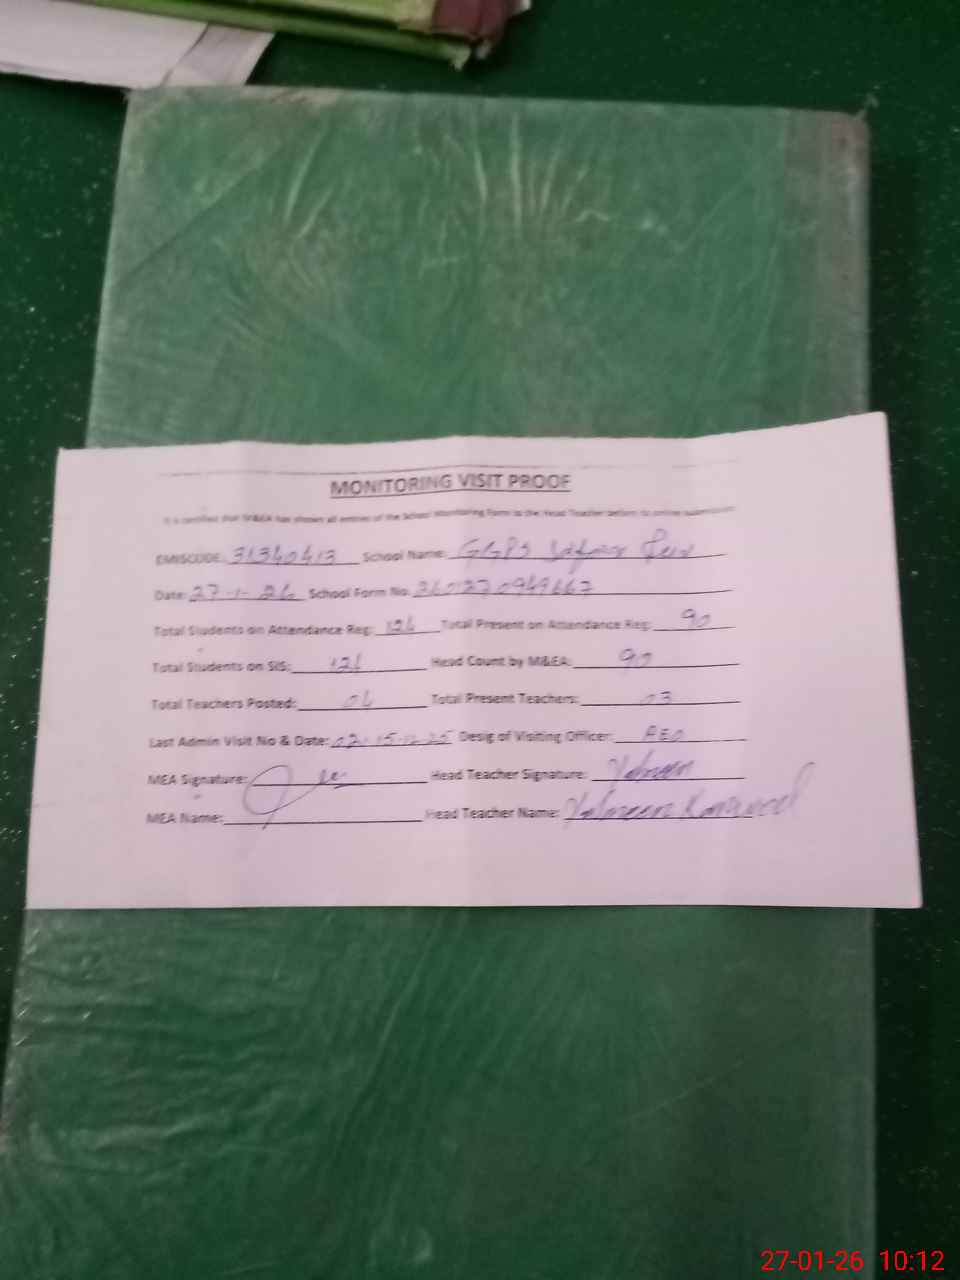 MONITORING VISIT PROOF
It is certified that M&EA has shown all entries of the School Monitoring Form to the Head Teacher before its online submission
EMISCODE: 31340413 School Name: GGPS
Date: 27-1-26 School Form No.
Total Students on Attendance Reg: 126 Total Present on Attendance Reg: 90
Total Students on SIS: 126 Head Count by M&EA: 90
Total Teachers Posted: 04 Total Present Teachers: 03
Last Admin Visit No & Date: 02. 15.12.25 Desig of Visiting Officer: AEO
MEA Signature: Head Teacher Signature:
MEA Name: Head Teacher Name:
27-01-26 10:12